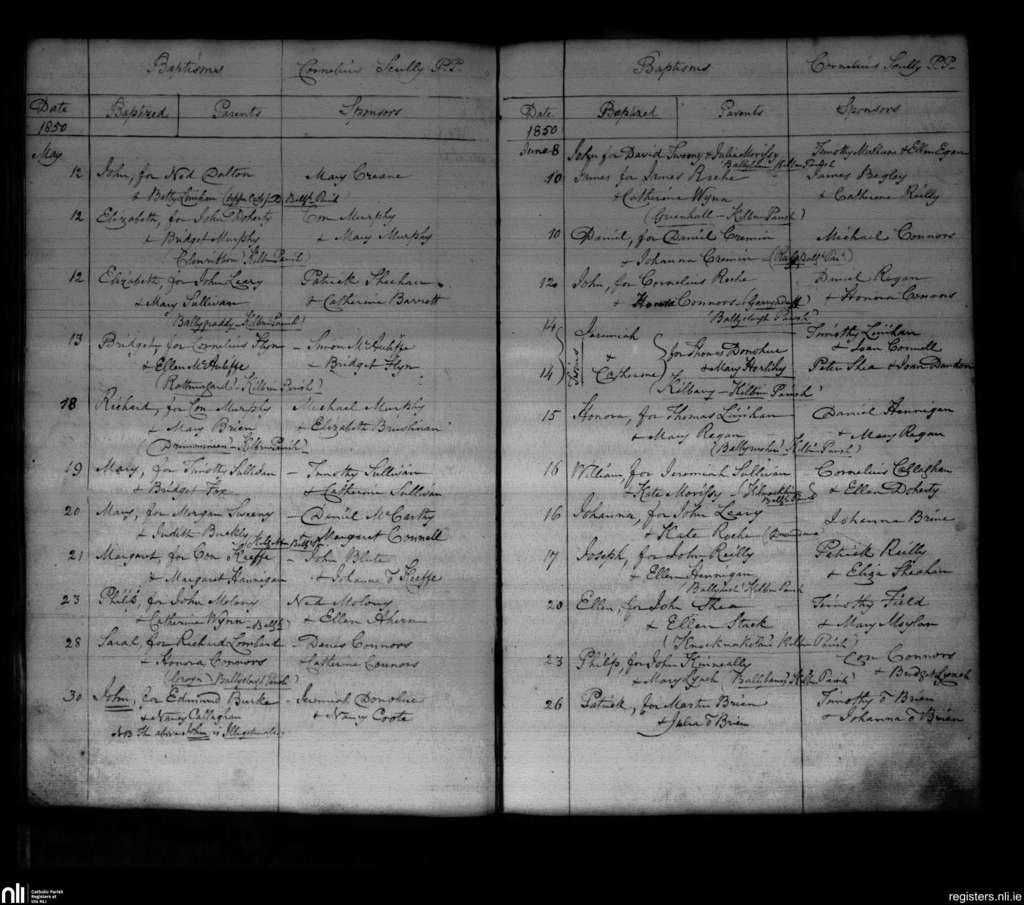 Baptisms Cornelius Scully P.P.
Date Baptized Parents Sponsors
1850
May
12 John, for Ned Dalton Mary Creane
& Betty
12 Elizabeth, for John Doherty Con Murphy
& Bridget Murphy & Mary Murphy
Kilbrin Parish)
12 Elizabeth, for John Leary Patrick Sheehan
& Mary Sullivan & Catherine Barrett
Kilbrin Parish)
13 Bridget, for Cornelius Flyn – Simon McAuliffe
& Ellen McAuliffe – Bridget Flyn
Kilbrin Parish)
18 Richard, for Con Murphy Michael Murphy
& Mary Brien & Elizabeth Brushnan
Kilbrin Parish)
19 Mary, for Timothy – Timothy Sullivan
& Bridget Fox & Catherine Sullivan
20 Mary, for Morgan Sweeny – Daniel McCarthy
& Judith Buckley Margaret Connell
21 Margaret, for Con Keeffe – John
& Margaret Hannegan & Johanna O Keeffe
23 Philip, for John Molony Ned Molony
& Catherine Wynn & Ellen Ahern
28 Sarah, for Richard Lombard – Denis Connors
& Honora Connors & Catherine Connors
Parish)
30 John, for Edmund Burke – Jeremiah Donohue
& Nancy Callaghan & Nancy Coote
NB The above John is Illegitimate
Baptisms Cornelius Scully P.P.
Date Baptized Parents Sponsors
1850
June 8 John for David Sweeny & Julia Morissy Timothy & Ellen Egan
Kilbrin Parish
10 James for James Roche James Begley
& Catherine Wynn & Catherine Reilly
(Greenhall – Kilbrin Parish)
10 Daniel, for Daniel Cremin Michael Connors
& Johanna Cremin
12 John, for Cornelius Roche Daniel Regan
& Connors & Honora Connors
Parish)
14 Jeremiah Timothy Linihan
Twins & for Thomas Donohue & Joan Connell
14 Catherine & Mary Herlihy Peter Shea & Joan
Kilbrin Parish
15 Honora, for Thomas Linihan Daniel Hannigan
& Mary Regan & Mary Regan
Kilbrin Parish)
16 William for Jeremiah Sullivan Cornelius Callaghan
& Kate Morissy & Ellen Doherty
16 Johanna, for John Leary Johanna Brine
& Kate Roche
17 Joseph, for John Reilly Patrick Reilly
& Ellen Hannigan & Eliza Sheahan
Kilbrin Parish
20 Ellen, for John Shea Timothy Field
& Ellen Stack & Mary Moylan
Kilbrin Parish)
23 Philip, for John Kinneally – Con Connors
& Mary Lynch & Bridget Lynch
26 Patrick, for Martin Brien Timothy O Brien
& Julia O Brien & Johanna O Brien
nli Catholic Parish
Registers at
the NLI
registers.nli.ie